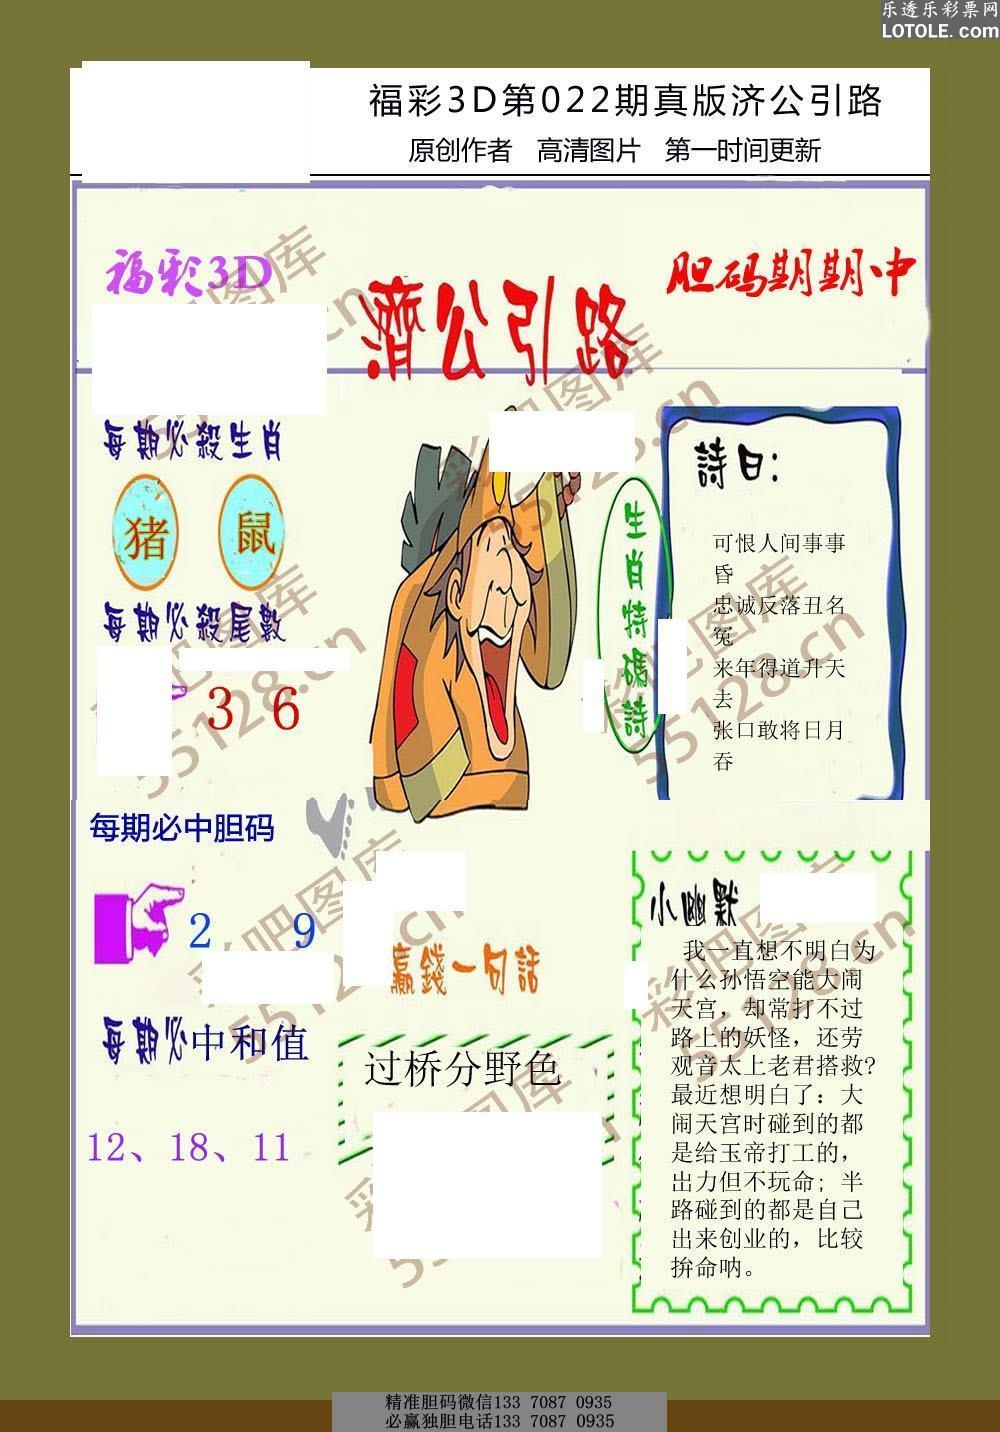 乐透乐彩票网
LOTOLE.com
福彩3D第022期真版济公引路
原创作者 高清图片 第一时间更新
福彩3D
濟公引路
胆码期期中
每期必殺生肖
猪 鼠
每期必殺尾數
3 6
生肖特碼詩
詩曰:
可恨人间事事
昏
忠诚反落丑名
冤
来年得道升天
去
张口敢将日月
吞
每期必中胆码
2 9
每期必中和值
12、18、11
赢錢一句話
过桥分野色
小幽默
我一直想不明白为
什么孙悟空能大闹
天宫，却常打不过
路上的妖怪，还劳
观音太上老君搭救?
最近想明白了：大
闹天宫时碰到的都
是给玉帝打工的，
出力但不玩命；半
路碰到的都是自己
出来创业的，比较
拚命呐。
彩吧图库
55128.cn
精准胆码微信133 7087 0935
必赢独胆电话133 7087 0935